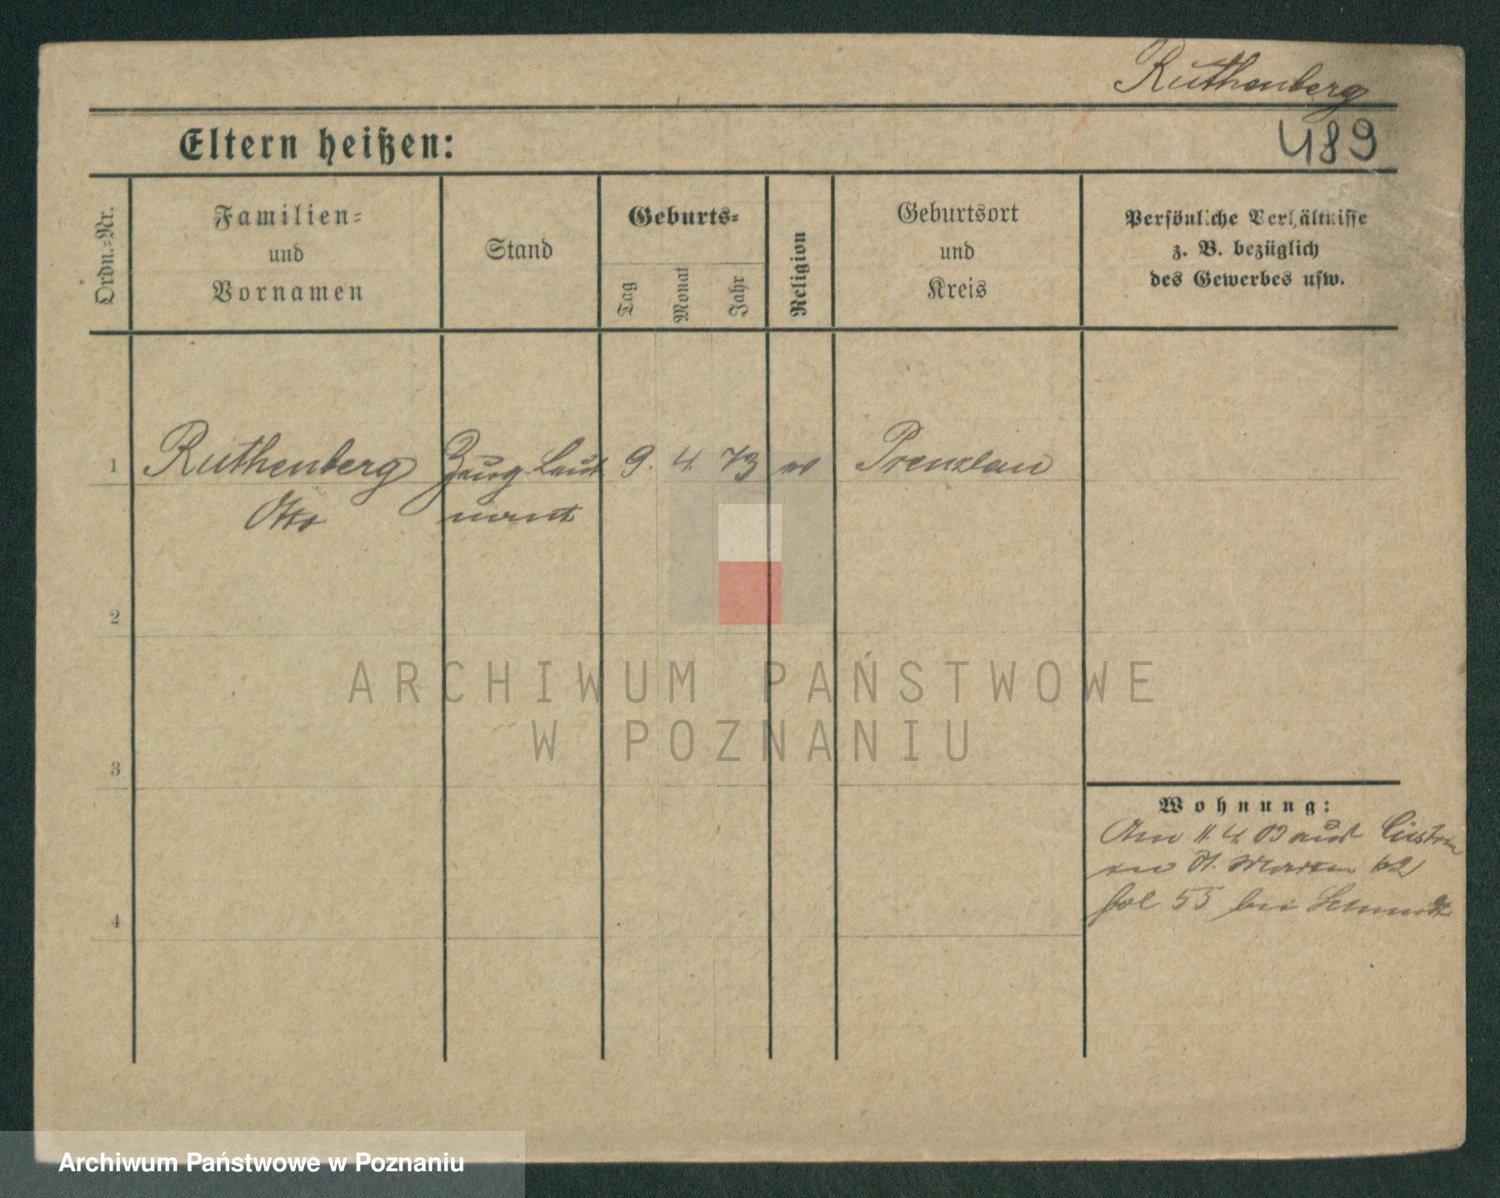 Ruthenberg
489
Eltern heißen:
Ordn.=Nr.
Familien=
und
Vornamen
Stand
Geburts=
Tag
Monat
Jahr
Religion
Geburtsort
und
Kreis
Persönliche Verhältnisse
z. B. bezüglich
des Gewerbes usw.
1 Ruthenberg Zeug Leut 9. 4. 73 ev Prenzlau
Otto nant
2
3
4
Wohnung:
Am 11. 4. 03 aus Cüstrin
St. Martin 62
55 bei Schmidt
ARCHIWUM PAŃSTWOWE
W POZNANIU
Archiwum Państwowe w Poznaniu